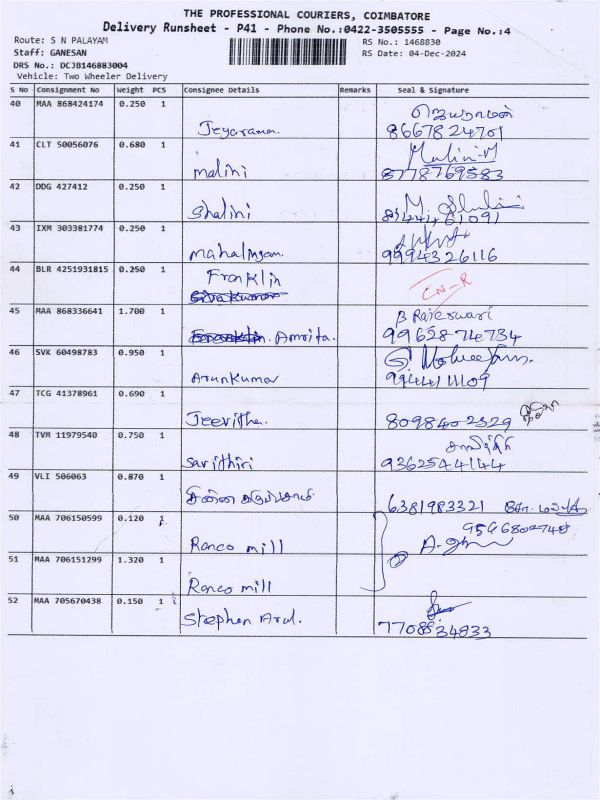 THE PROFESSIONAL COURIERS, COIMBATORE
Delivery Runsheet - P41 - Phone No.:0422-3505555 - Page No.:4
Route: S N PALAYAM
RS No.: 1468830
Staff: GANESAN
RS Date: 04-Dec-2024
DRS No.: DCJB146883004
Vehicle: Two Wheeler Delivery
S No Consignment No Weight PCS Consignee Details Remarks Seal & Signature
40 MAA 868424174 0.250 1 Jeyaraman ஜெயராமன்
8667824701
41 CLT 50056076 0.680 1 Malini Malini.M
8778769583
42 DDG 427412 0.250 1 Shalini M. Shalini
43 IXM 303381774 0.250 1
9994326116
44 BLR 4251931815 0.250 1 Franklin
Sivakumar
CN-R
45 MAA 868336641 1.700 1 Franklin. Amrita. B Rajeswari
9962874734
46 SVK 60498783 0.950 1 ArunKumar
47 TCG 41378961 0.690 1 Jeevitha. 8098402329
48 TVM 11979540 0.750 1 Savithiri சாவித்திரி
9362544144
49 VLI 506063 0.870 1 6381983321
50 MAA 706150599 0.120 1 Ranco mill
51 MAA 706151299 1.320 1 Ranco mill
52 MAA 705670438 0.150 1 Stephen Arul.
7708834833